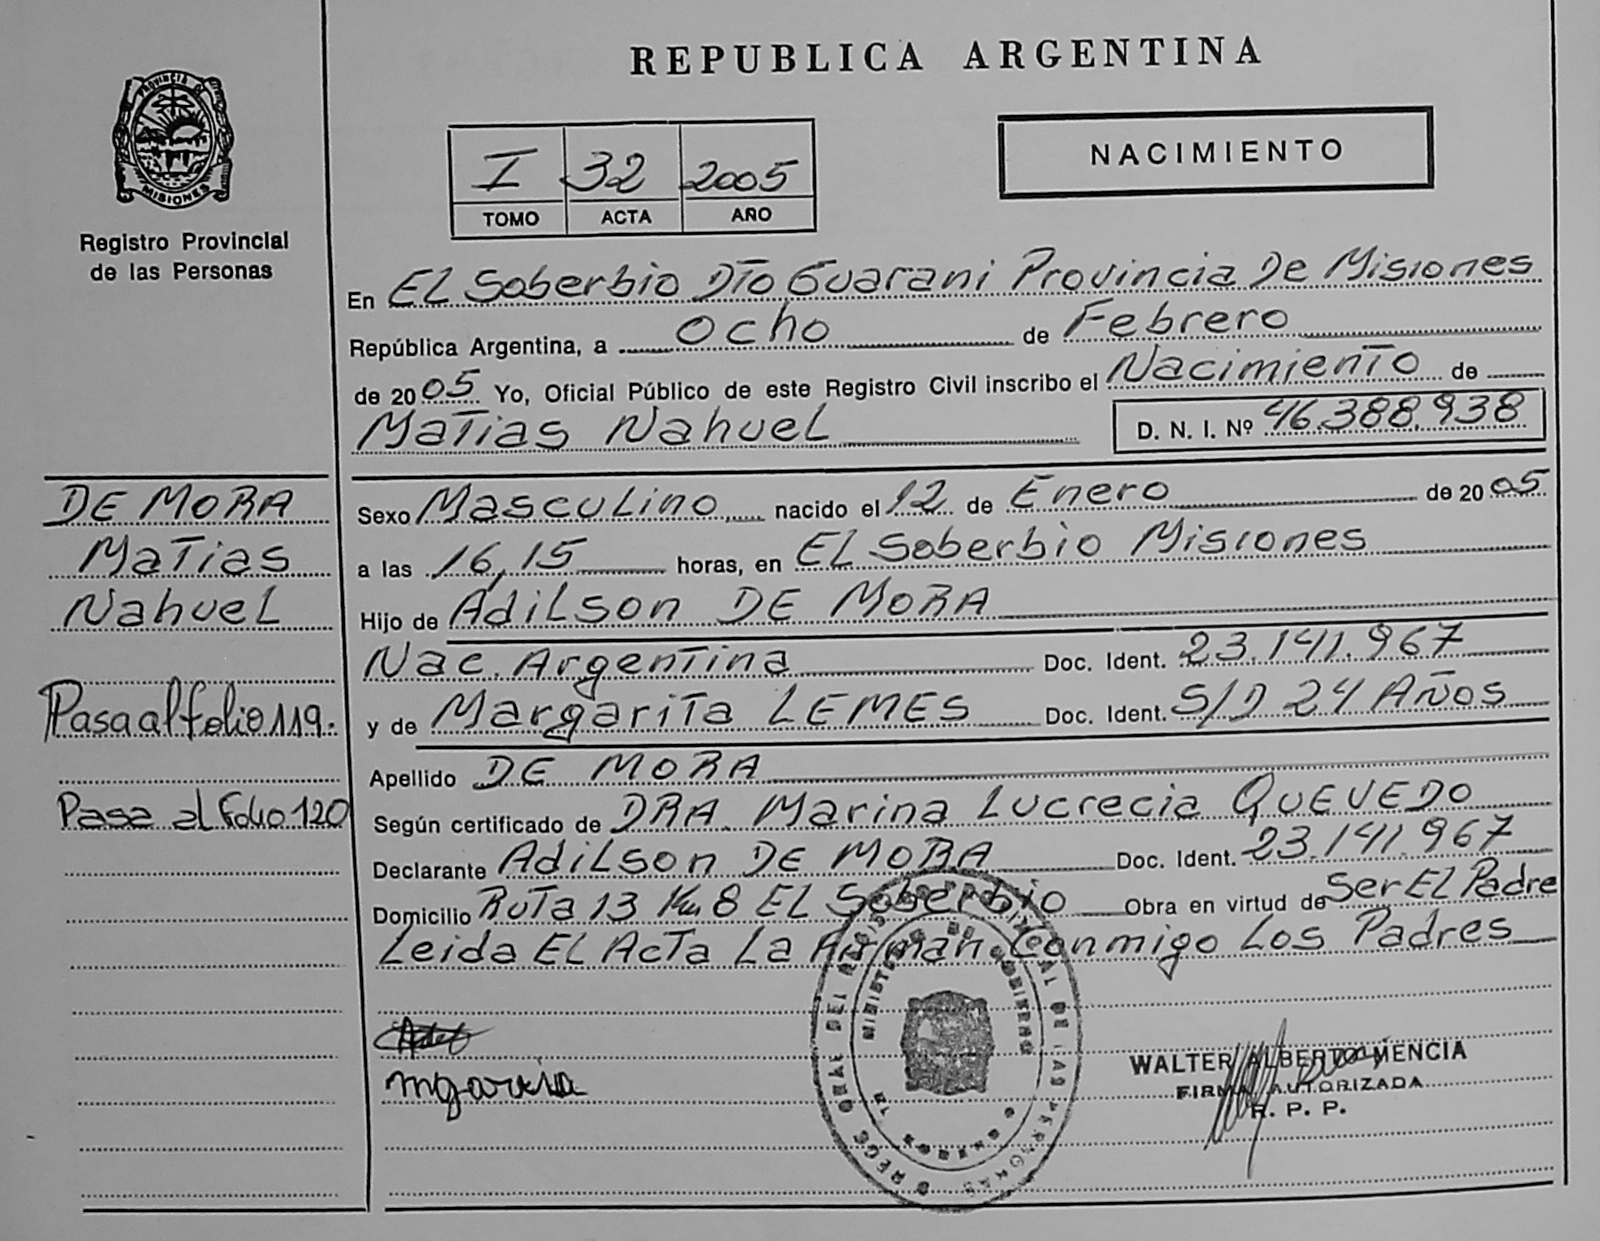 REPUBLICA ARGENTINA
PROVINCIA DE
MISIONES
Registro Provincial
de las Personas
I 32 2005
TOMO ACTA AÑO
NACIMIENTO
En EL Soberbio DTo Guarani Provincia De Misiones
República Argentina, a ocho de Febrero
de 2005 Yo, Oficial Público de este Registro Civil inscribo el Nacimiento de
Matias Nahuel D. N. I. Nº 46.388.938
DE MORA
Matias
Nahuel
Pasa al folio 119.
Pasa al Folio 120
Sexo Masculino nacido el 12 de Enero de 2005
a las 16,15 horas, en EL Soberbio Misiones
Hijo de Adilson DE MORA
Nac. Argentina Doc. Ident. 23.141.967
y de Margarita LEMES Doc. Ident. S/D 24 AÑOS
Apellido DE MORA
Según certificado de DRA. Marina Lucrecia QUEVEDO
Declarante Adilson DE MORA Doc. Ident. 23.141.967
Domicilio Ruta 13 Km 8 EL Soberbio Obra en virtud de Ser El Padre
Leida EL Acta La Firman Conmigo Los Padres
WALTER ALBERTO MENCIA
FIRMA AUTORIZADA
R. P. P.